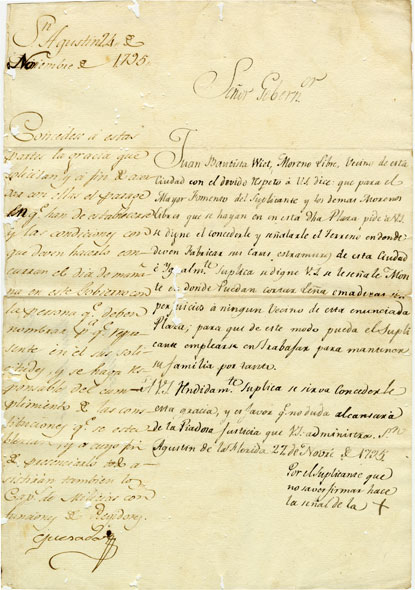 Sn Agustin 24 de
Noviembre de 1795
Señor Goberor
Concedese a estas
partes la gracia que
solicitan, y a fin de
el parage
en q.e han de establecerse
y las condiciones con
que deven hacerlo con
curran el dia de maña
na en este Gobierno con
la persona q.e deben
nombrar p.a q.e repre
sente en el sus soli
citudes, y se haga res
ponsable del cum
plimiento de las cons
tituciones q.e se esta
blescan, y a cuyo fin
de presenciarlo todo a
sistirán tambien los
Cap.s de Milicias con
funciones de
Quesada
Juan Bautista Wiet, Moreno Libre, Vecino de esta
Ciudad con el devido respeto à V.S. dice: que para el
Mayor fomento del Suplicante y los demas Morenos
libres que se hayan en esta dha Plaza pide a V.S.
se digne el concederle y señalarle el Terreno en donde
deven Fabricar sus Casas extramuros de esta Ciudad
è Ygualm.te Suplica se digne V.S. se le señale Mon
te en donde Puedan cortar Leña
perjuicios à ningun Vecino de esta enunciada
Plaza; para que de este modo pueda el Supli
cante emplearse en trabajar para mantener
su familia por tanto.
V.S. Rendidam.te Suplica se sirva concederle
esta gracia, y el favor q.e no duda alcansará
de la Piadosa Justicia que V.S. administra. S.n
Agustin de la Florida 22 de Novre de 1795
Por el Suplicante que
no save firmar hace
la señal de la +